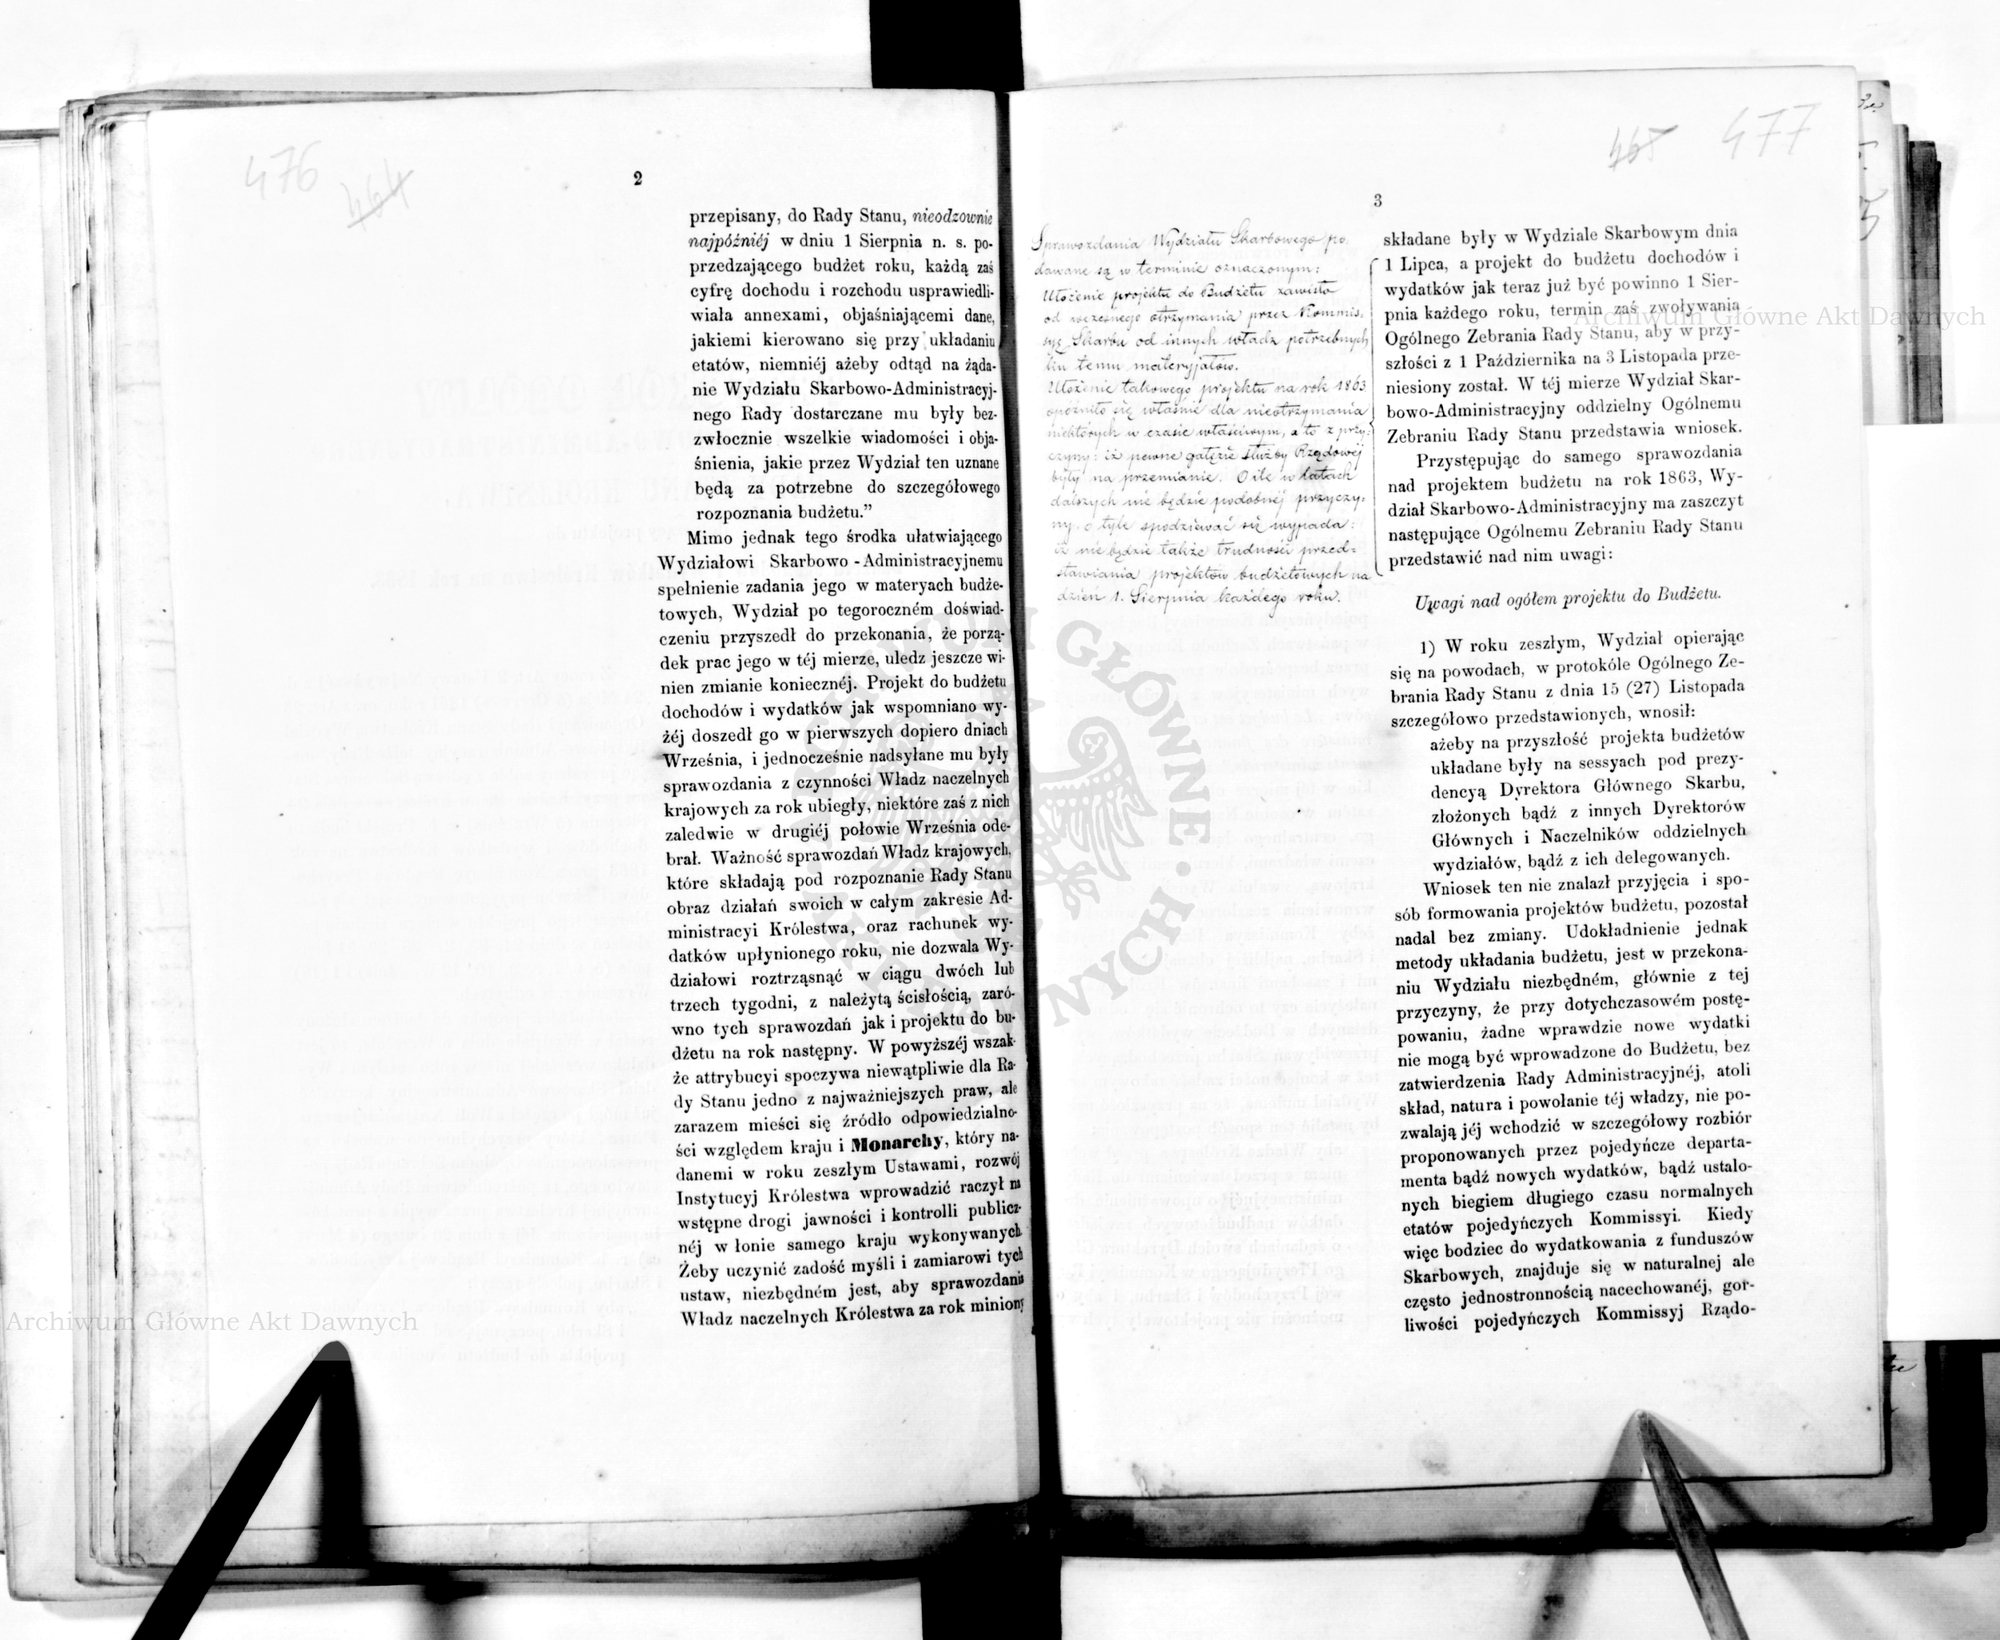 476
464
2
przepisany, do Rady Stanu, nieodzownie
najpóźniéj w dniu 1 Sierpnia n. s. po-
przedzającego budżet roku, każdą zaś
cyfrę dochodu i rozchodu usprawiedli-
wiała annexami, objaśniającemi dane,
jakiemi kierowano się przy układaniu
etatów, niemniéj ażeby odtąd na żąda-
nie Wydziału Skarbowo-Administracyj-
nego Rady dostarczane mu były bez-
zwłocznie wszelkie wiadomości i obja-
śnienia, jakie przez Wydział ten uznane
będą za potrzebne do szczegółowego
rozpoznania budżetu.”
Mimo jednak tego środka ułatwiającego
Wydziałowi Skarbowo - Administracyjnemu
spełnienie zadania jego w materyach budże-
towych, Wydział po tegoroczném doświad-
czeniu przyszedł do przekonania, że porzą-
dek prac jego w téj mierze, uledz jeszcze wi-
nien zmianie koniecznéj. Projekt do budżetu
dochodów i wydatków jak wspomniano wy-
żéj doszedł go w pierwszych dopiero dniach
Września, i jednocześnie nadsyłane mu były
sprawozdania z czynności Władz naczelnych
krajowych za rok ubiegły, niektóre zaś z nich
zaledwie w drugiéj połowie Września ode-
brał. Ważność sprawozdań Władz krajowych,
które składają pod rozpoznanie Rady Stanu
obraz działań swoich w całym zakresie Ad-
ministracyi Królestwa, oraz rachunek wy-
datków upłynionego roku, nie dozwala Wy-
działowi roztrząsnąć w ciągu dwóch lub
trzech tygodni, z należytą ścisłością, zaró-
wno tych sprawozdań jak i projektu do bu-
dżetu na rok następny. W powyższéj wszak-
że attrybucyi spoczywa niewątpliwie dla Ra-
dy Stanu jedno z najważniejszych praw, ale
zarazem mieści się źródło odpowiedzialno-
ści względem kraju i Monarchy, który na-
danemi w roku zeszłym Ustawami, rozwój
Instytucyj Królestwa wprowadzić raczył na
wstępne drogi jawności i kontrolli publicz-
néj w łonie samego kraju wykonywanych.
Żeby uczynić zadość myśli i zamiarowi tych
ustaw, niezbędném jest, aby sprawozdania
Władz naczelnych Królestwa za rok miniony
465
477
3
Sprawozdania Wydziału Skarbowego po-
dawane są w terminie oznaczonym:
Ułożenie projektu do Budżetu zawisło
od wczesnego otrzymania przez Kommis-
syę Skarbu od innych władz potrzebnych
ku temu materyjałów.
Ułożenie takowego projektu na rok 1863
opóźniło się właśnie dla nieotrzymania
niektórych w czasie właściwym, a to z przy-
czyny: iż pewne gałęzie służby Rządowej
były na przemianie. O ile w latach
dalszych nie będzie podobnéj przyczy-
ny, o tyle spodziewać się wypada:
iż nie będzie także trudności przed-
stawiania projektów budżetowych na
dzień 1. Sierpnia każdego roku.
składane były w Wydziale Skarbowym dnia
1 Lipca, a projekt do budżetu dochodów i
wydatków jak teraz już być powinno 1 Sier-
pnia każdego roku, termin zaś zwoływania
Ogólnego Zebrania Rady Stanu, aby w przy-
szłości z 1 Października na 3 Listopada prze-
niesiony został. W téj mierze Wydział Skar-
bowo-Administracyjny oddzielny Ogólnemu
Zebraniu Rady Stanu przedstawia wniosek.
Przystępując do samego sprawozdania
nad projektem budżetu na rok 1863, Wy-
dział Skarbowo-Administracyjny ma zaszczyt
następujące Ogólnemu Zebraniu Rady Stanu
przedstawić nad nim uwagi:
Uwagi nad ogółem projektu do Budżetu.
1) W roku zeszłym, Wydział opierając
się na powodach, w protokóle Ogólnego Ze-
brania Rady Stanu z dnia 15 (27) Listopada
szczegółowo przedstawionych, wnosił:
ażeby na przyszłość projekta budżetów
układane były na sessyach pod prezy-
dencyą Dyrektora Głównego Skarbu,
złożonych bądź z innych Dyrektorów
Głównych i Naczelników oddzielnych
wydziałów, bądź z ich delegowanych.
Wniosek ten nie znalazł przyjęcia i spo-
sób formowania projektów budżetu, pozostał
nadal bez zmiany. Udokładnienie jednak
metody układania budżetu, jest w przekona-
niu Wydziału niezbędném, głównie z tej
przyczyny, że przy dotychczasowém postę-
powaniu, żadne wprawdzie nowe wydatki
nie mogą być wprowadzone do Budżetu, bez
zatwierdzenia Rady Administracyjnéj, atoli
skład, natura i powołanie téj władzy, nie po-
zwalają jéj wchodzić w szczegółowy rozbiór
proponowanych przez pojedyńcze departa-
menta bądź nowych wydatków, bądź ustalo-
nych biegiem długiego czasu normalnych
etatów pojedyńczych Kommissyi. Kiedy
więc bodziec do wydatkowania z funduszów
Skarbowych, znajduje się w naturalnej ale
często jednostronnością nacechowanéj, gor-
liwości pojedyńczych Kommissyj Rządo-
Archiwum Główne Akt Dawnych
Archiwum Główne Akt Dawnych
ARCHIWUM GŁÓWNE AKT DAWNYCH